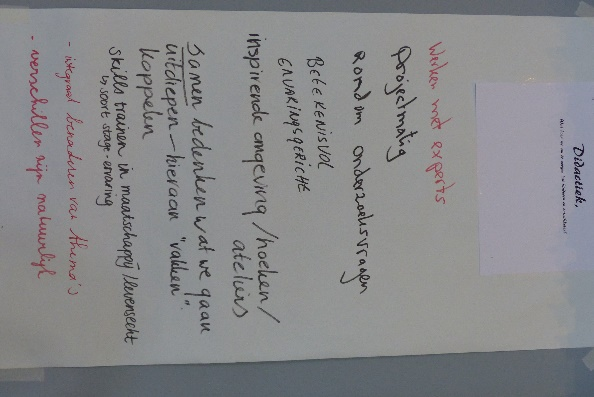 Didactiek,
Werken met experts
Projectmatig
Rondom onderzoeksvragen
BETEKENISVOL
ERVARINGSGERICHT
inspirerende omgeving/hoeken/
ateliers
Samen bedenken wat we gaan
uitdiepen - hieraan "vakken"
koppelen
skills trainen in maatschappij/levensecht
↳ soort stage-ervaring
- integraal benaderen van thema's
- verschillen zijn natuurlijk